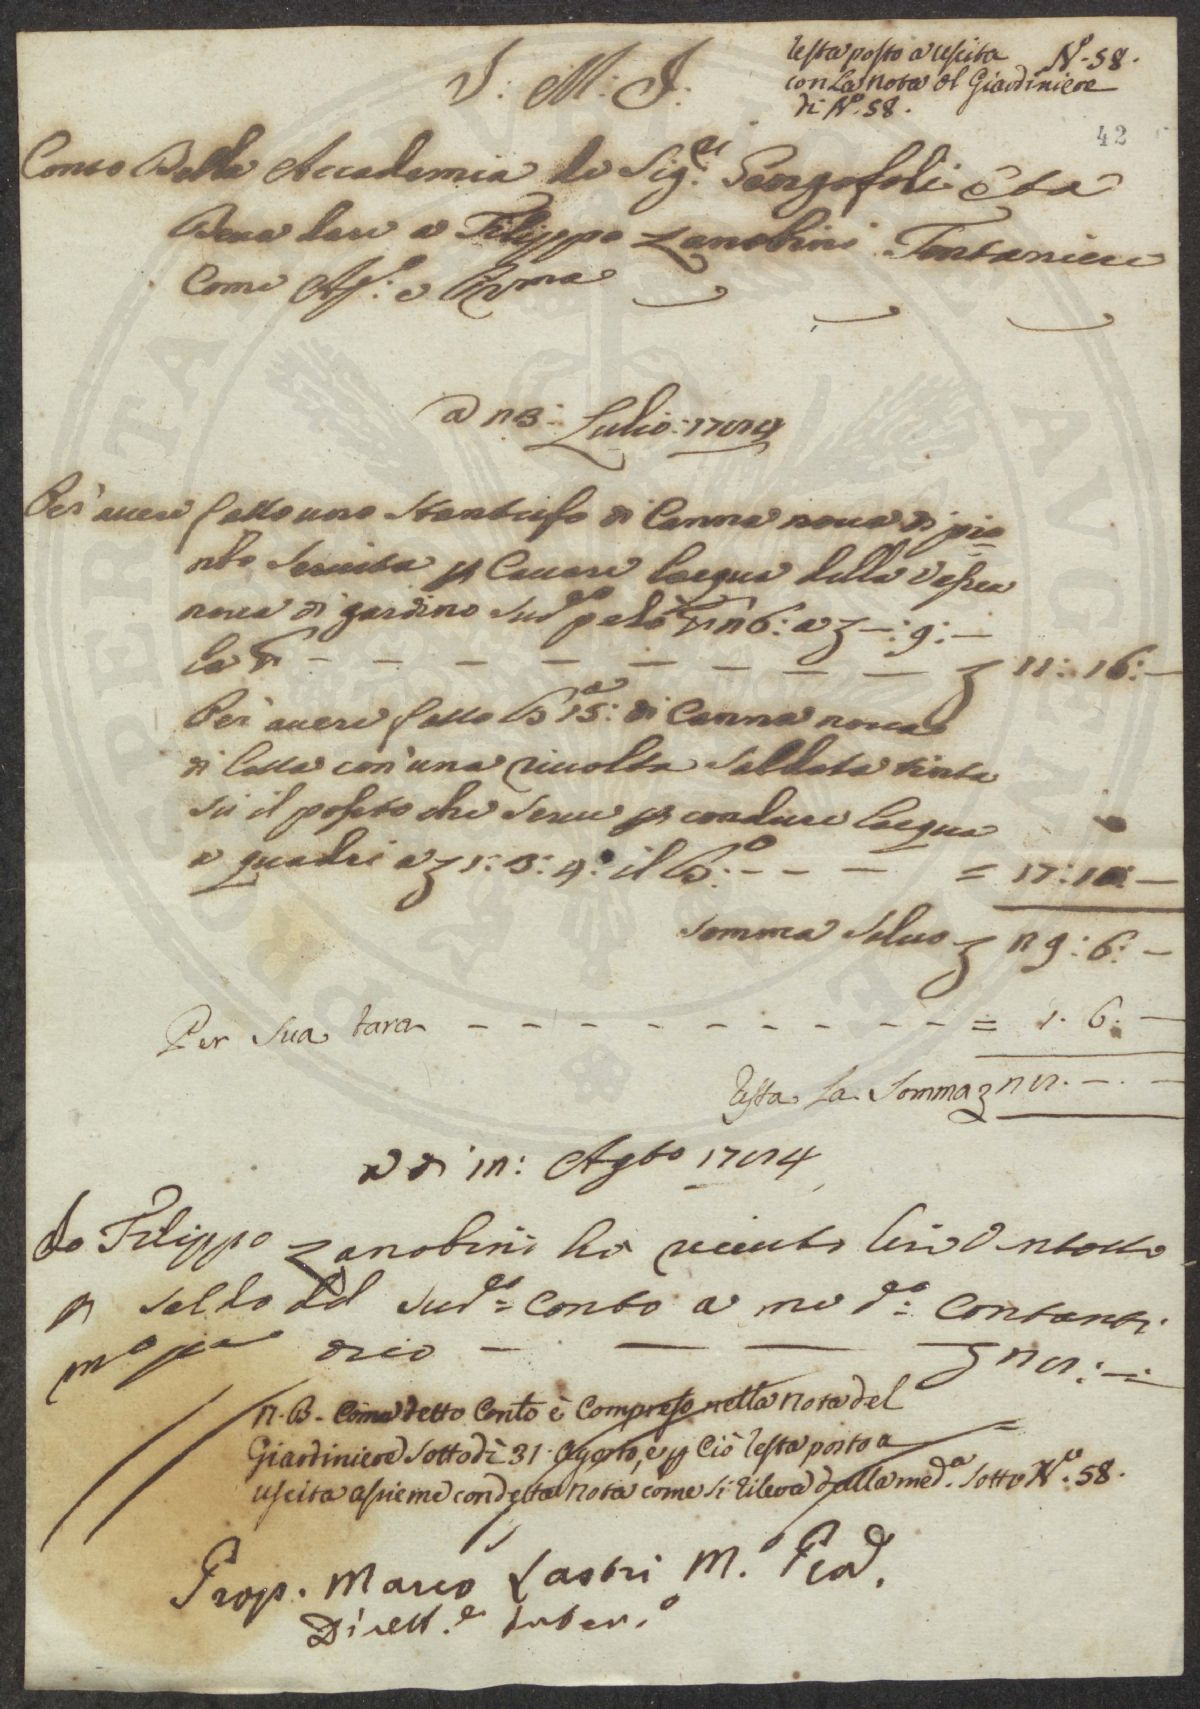 Resta posto a uscita N.° 58.
con la nota del Giardiniere
di N.° 58.
J: M: J:
42
Conto Della Accademia de Sig.ri Georgofoli e ta
Deva dare a Filippo Zanobini Fontaniere
Come Ap.o e Prma
Lulio: 1784
Per avere fatto uno Stantufo di Canna nova di pio
nbo servita p Cavare lacqua della Vasca
nova di gardino Sud.o
la
Per avere fatto B.a 15: di Canna nova
di latta con una rivolta saldata tinta
Su il posto che serve p condure lacqua
a quadri a 1: 3: 4: il B.o - - - =
Somma Salvo 29: 6: —
Per Sua tara - - - - - - - - - - - = 1. 6. —
Resta La Somma 28. —. —
A di 12: Agto 1784
Io Filippo Zanobini ho ricuto lire Vntotto
p saldo del Sud.o = Conto a me d.o: Contanti
m.o pa dico — — — 28: —: —
N. B. Come detto Conto è compreso nella nota del
Giardiniere Sotto dì 31. Agosto, e p Ciò resta posto a
uscita assieme con detta nota come si rileva dalla med.a Sotto N.° 58.
Prop. Marco Lastri M.o Pad.e
Dirett.e Inter.o
PROSPERITATI PUBLICAE AUGENDAE